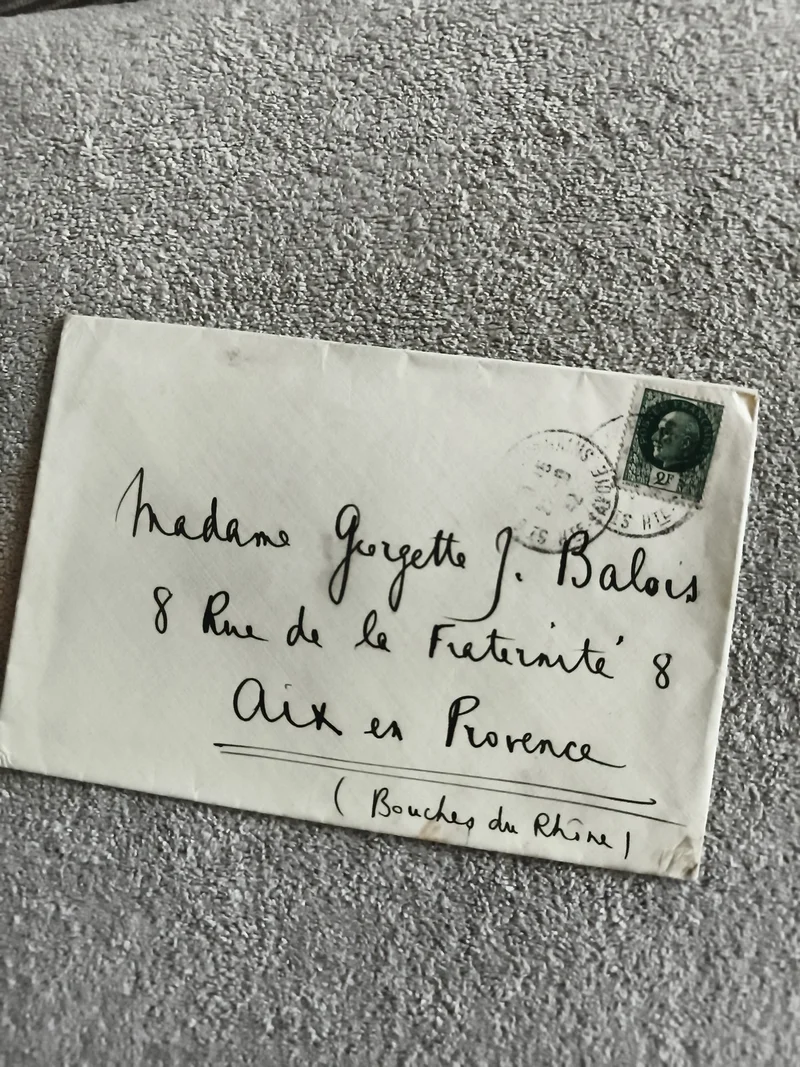 2F
Madame Georgette J. Balois
8 Rue de la Fraternité 8
Aix en Provence
(Bouches du Rhône)